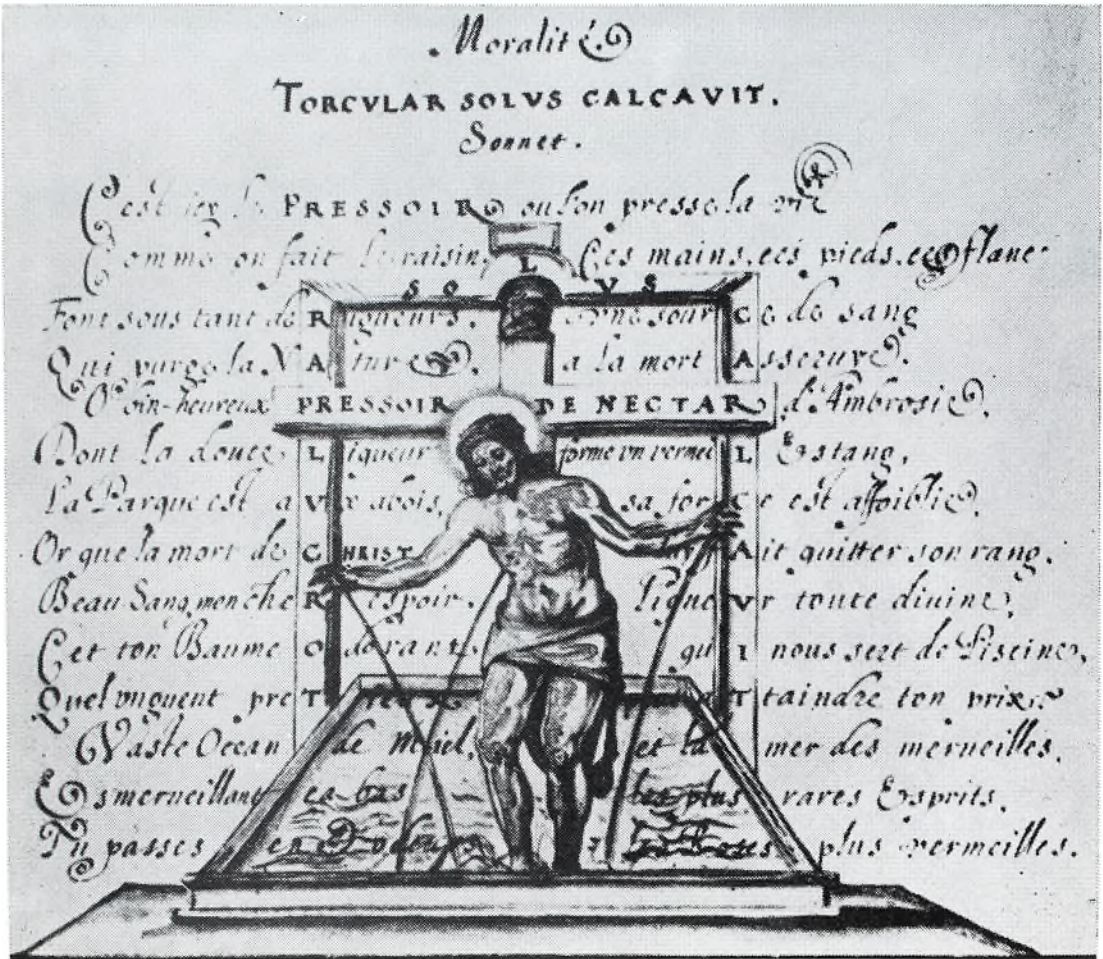 Moralité
TORCVLAR SOLVS CALCAVIT.
Sonnet.
C'est icy le PRESSOIR ou l'on presse la vie
Comme on fait le raisin, Ces mains, ces pieds, ce flanc
SOLVS
Font sous tant de Rigueurs, Une sourCe de sang
Qui purge la NAture a la mort Asseruye.
O bin-heureux PRESSOIR DE NECTAR d'Ambrosie,
Dont la douce Liqueur forme vn vermeiL Estang,
La Parque est aVx abois, sa forCe est affoiblie,
Or que la mort de CHRIST fAit quitter son rang.
Beau Sang mon cheR espoir, LiqueVr toute diuine,
Cet ton Baume Odorant, quI nous sert de Piscine,
Quel vnguent preTieux aTtaindre ton prix
Vaste Ocean de Miel, et la mer des merueilles,
Esmerueillant bas les plus rares Esprits,
Tu passes en Odeurs les Roses plus vermeilles.